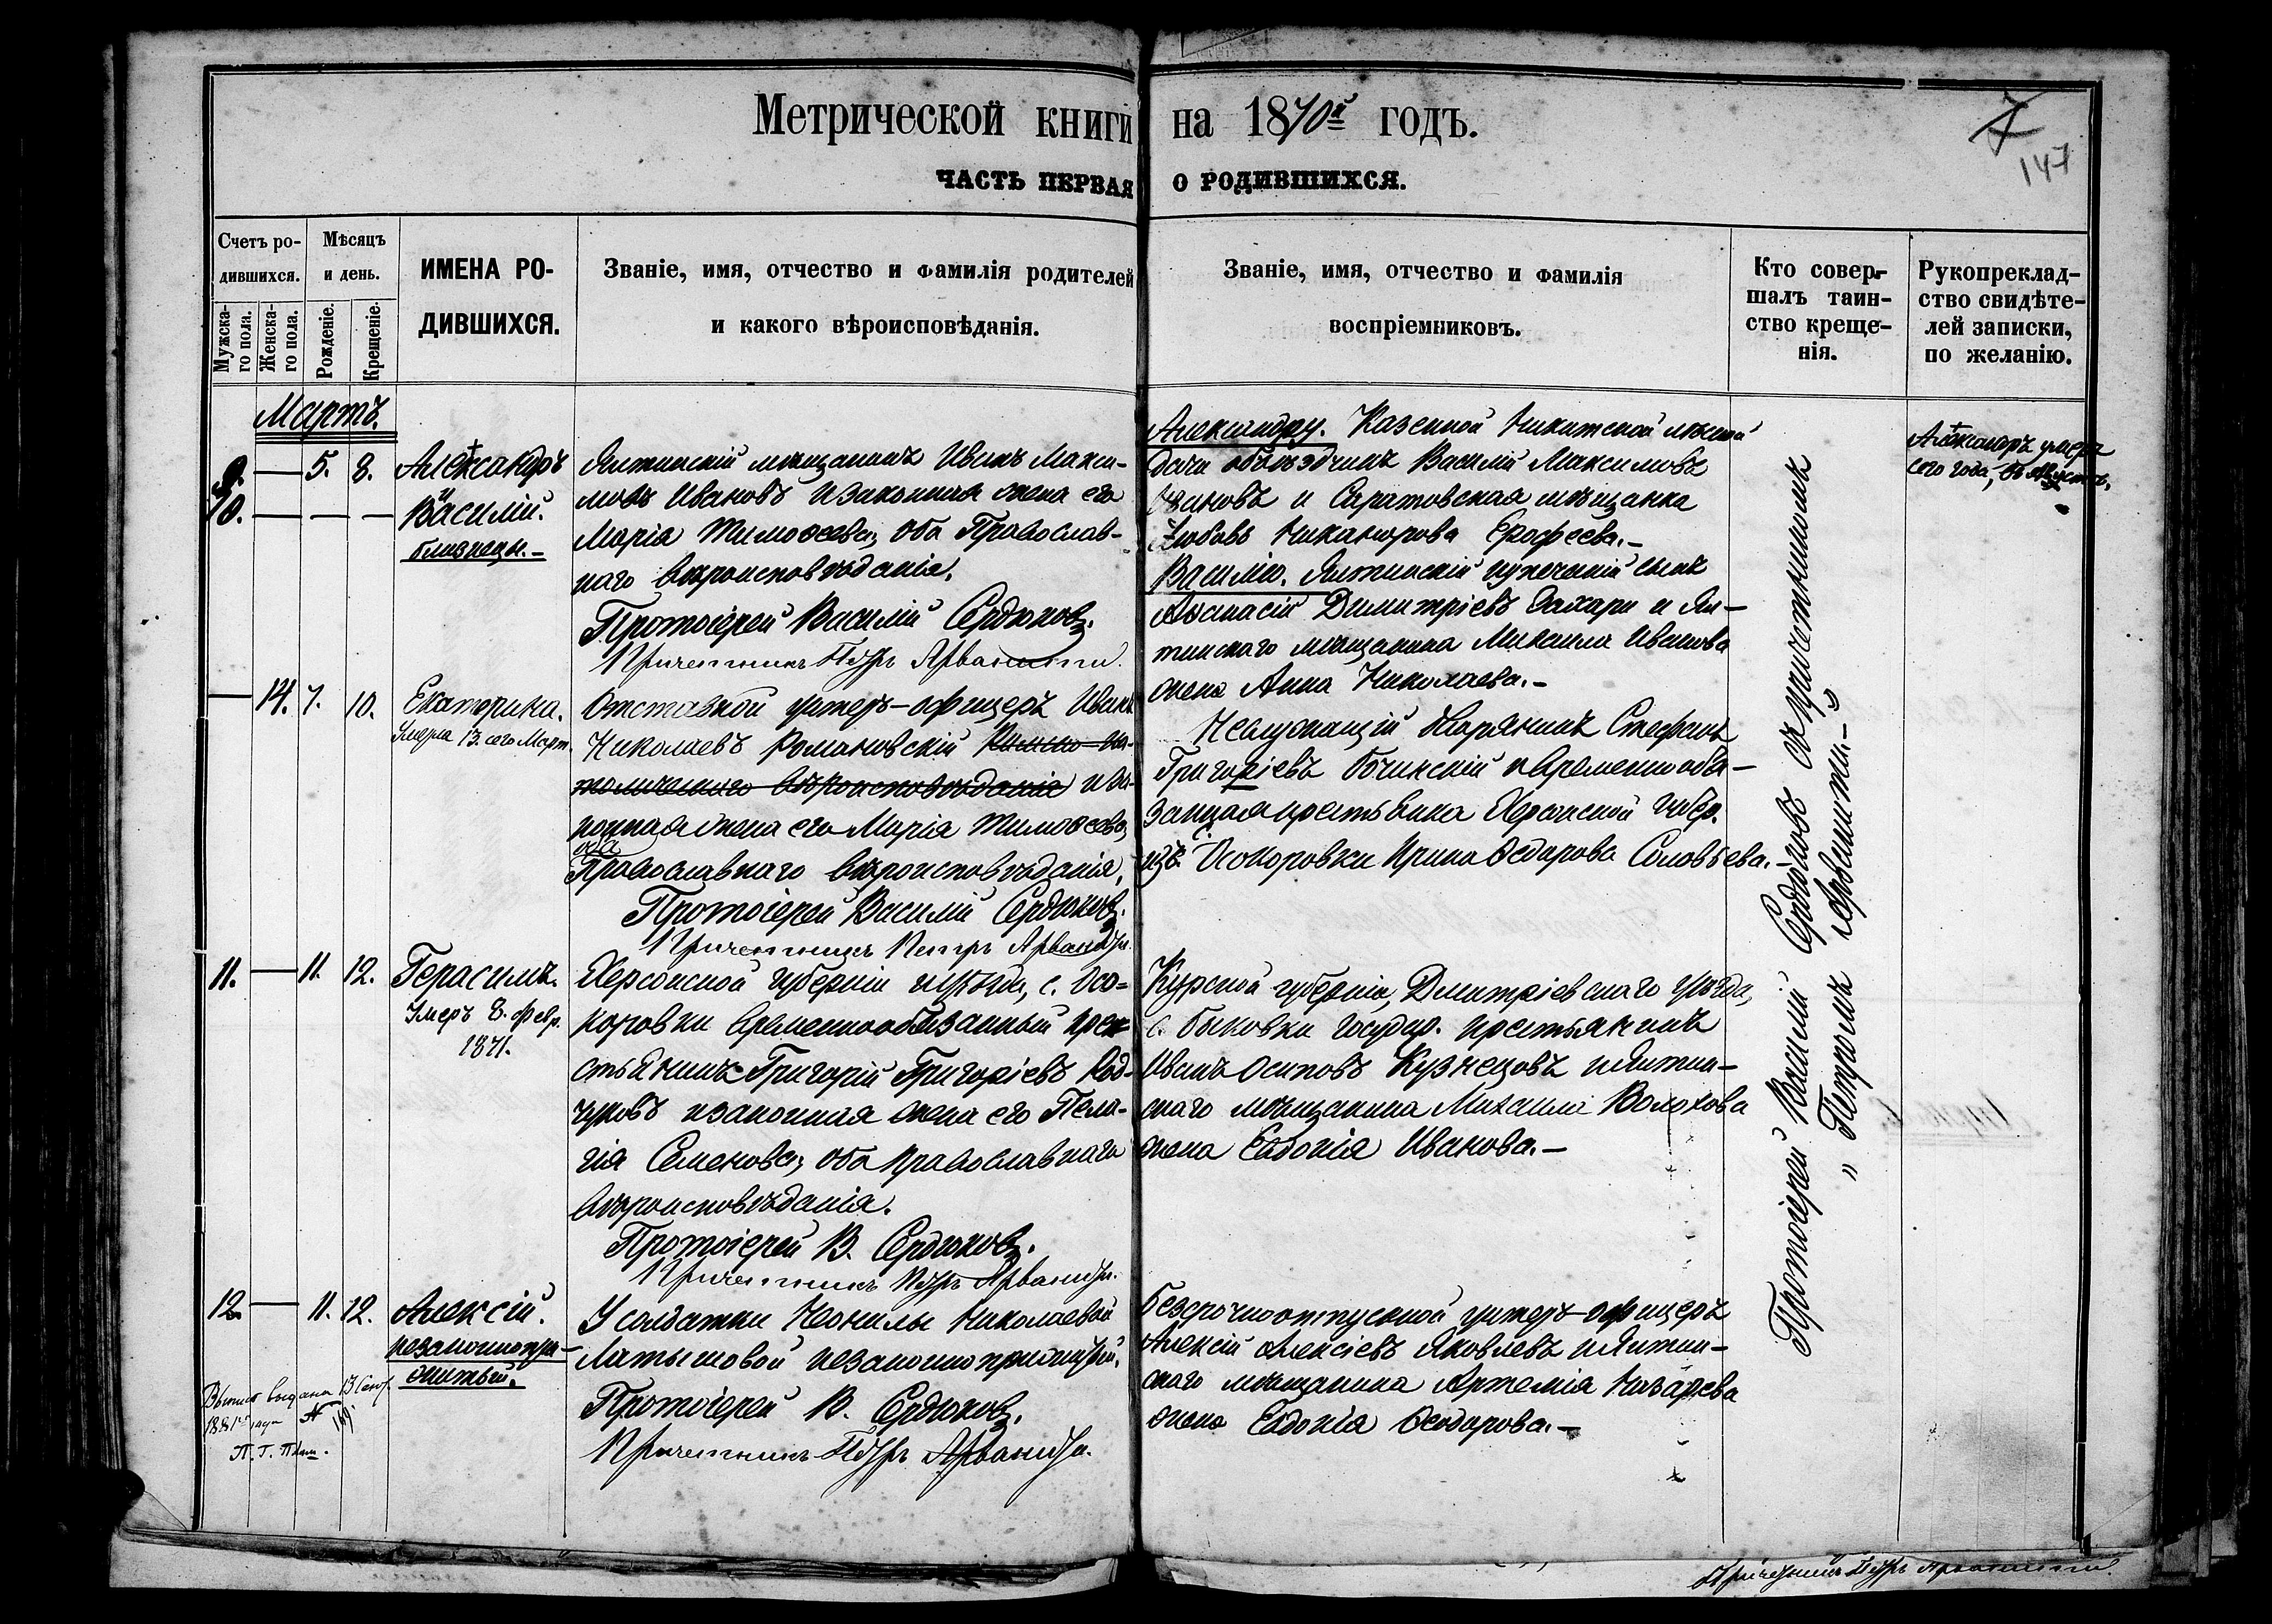 Метрической книги на 1870й годъ.
7
147
ЧАСТЬ ПЕРВАЯ О РОДИВШИХСЯ.
Счетъ родившихся.
Мужскаго пола.
Женскаго пола.
Мѣсяцъ и день.
Рожденіе.
Крещеніе.
ИМЕНА РО-
ДИВШИХСЯ.
Званіе, имя, отчество и фамилія родителей
и какого вѣроисповѣданія.
Званіе, имя, отчество и фамилія
воспріемниковъ.
Кто совер-
шалъ таин-
ство креще-
нія.
Рукоприклад-
ство свидѣте-
лей записки,
по желанію.
Мартъ.
9. — 5. 8.
10. — — —
Александръ
и
Василій.
близнецы. —
Ялтинскій мѣщанинъ Иванъ Макси-
мовъ Ивановъ и законная жена его
Марія Тимоѳеева, оба Православ-
наго вѣроисповѣданія.
Протоіерей Василій Сердюковъ.
Причетникъ Петръ Арванити.
Александру. Казенной Никитской лѣсной
дачи объѣздчикъ Василій Максимовъ
Ивановъ и Саратовская мѣщанка
Любовь Никанорова Ерофеева. —
Василію. Ялтинскій купеческій сынъ
Аѳанасій Димитріевъ Захари и Ял-
тинскаго мѣщанина Михаила Иванова
жена Анна Николаева. —
Александръ умеръ
сего года, въ
— 14. 7. 10.
Екатерина.
Умерла 13. сего Март.
Отставной унтеръ-офицеръ Иванъ
Николаевъ Романовскій Римско-ка-
толическаго вѣроисповѣданія и за-
конная жена его Марія Тимоѳеева,
оба
Православнаго вѣроисповѣданія.
Протоіерей Василій Сердюковъ.
Причетникъ Петръ Арваниti.
Неслужащій дворянинъ Стефанъ
Григоріевъ Бочинскій и временнообя-
занная крестьянка Херсонской губер.
с. Осокоровки Ирина Ѳедорова Соловьева. —
11. — 11. 12.
Герасимъ.
Умеръ 8. февр.
1871.
Херсонской губерніи и уѣзда, с. Осо-
коровки временнообязанный кре-
стьянинъ Григорій Григоріевъ
и законная жена его Пела-
гія Семенова, оба православнаго
вѣроисповѣданія.
Протоіерей В. Сердюковъ.
Причетникъ Петръ Арванити.
Курской губерніи, Дмитріевскаго уѣзда,
с. Быковки государ. крестьянинъ
Иванъ Осиповъ Кузнецовъ и Ялтин-
скаго мѣщанина Михаила Волохова
жена Евдокія Иванова. —
12. — 11. 12.
Алексій.
незаконнорож-
Выпись выдана 13 Сент.
1881го года № 169.
У солдатки Неонилы Николаевой
Латышовой незаконноприжитый.
Протоіерей В. Сердюковъ.
Причетникъ Петръ Арванити.
Безсрочноотпускной унтеръ-офицеръ
Алексій Алексіевъ Яковлевъ и Ялтин-
скаго мѣщанина Артемія Назарева
жена Евдокія Ѳеодорова. —
Протоіерей Василій Сердюковъ съ причетникомъ
„ Петромъ Арванити. —
Причетникъ Петръ Арванити.